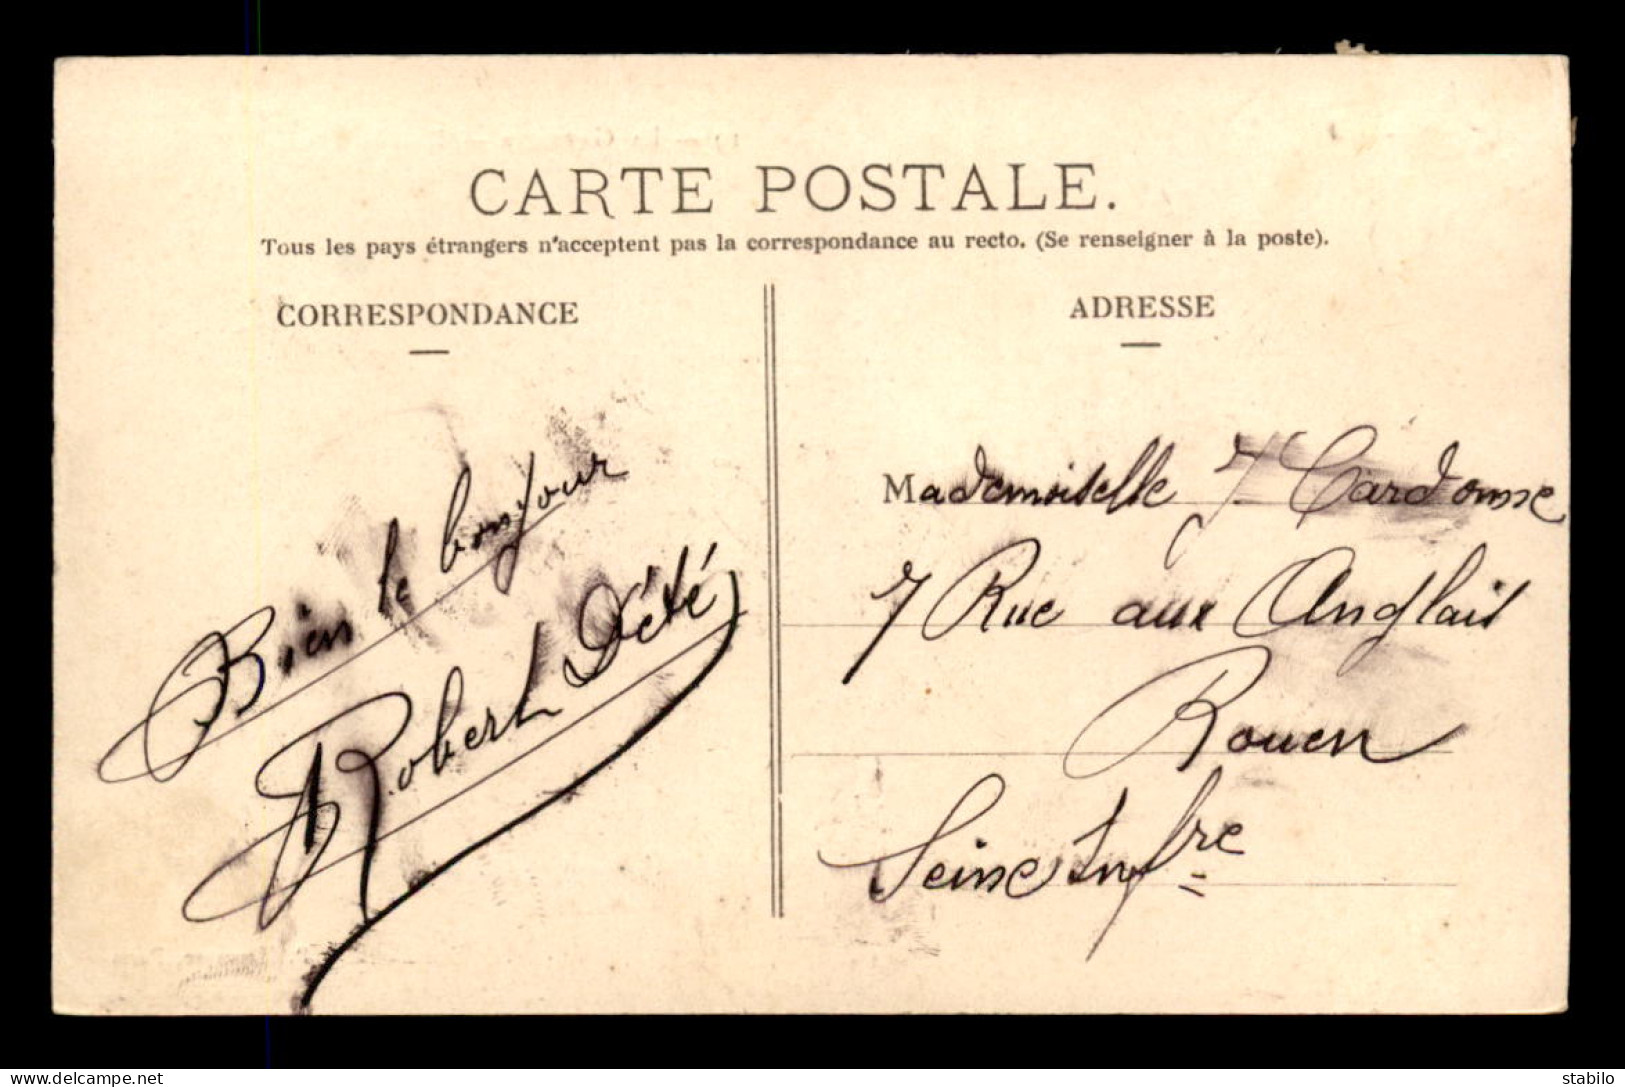 CARTE POSTALE.
Tous les pays étrangers n'acceptent pas la correspondance au recto. (Se renseigner à la poste).
CORRESPONDANCE
Bien le bonjour
Robert Dété
ADRESSE
Mademoiselle Y Cardonne
7 Rue aux Anglais
Rouen
Seine Infre
www.delcampe.net
stabilo